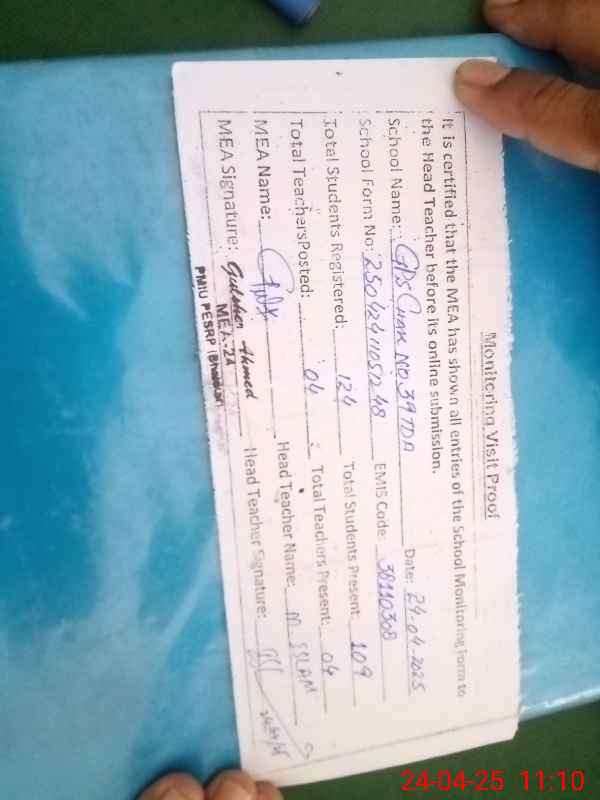 Monitoring Visit Proof
It is certified that the MEA has shown all entries of the School Monitoring Form to
the Head Teacher before its online submission.
School Name: GPS Chak No 39 TDA Date: 24-04-2025
School Form No: EMIS Code: 38110308
Total Students Registered: 124 Total Students Present: 109
Total Teachers Posted: 04 Total Teachers Present: 04
MEA Name: Head Teacher Name: M ISLAM
MEA Signature: Gulsher Ahmed Head Teacher Signature:
MEA-24
PMIU PESRP (Bhakkar)
24-04-25 11:10